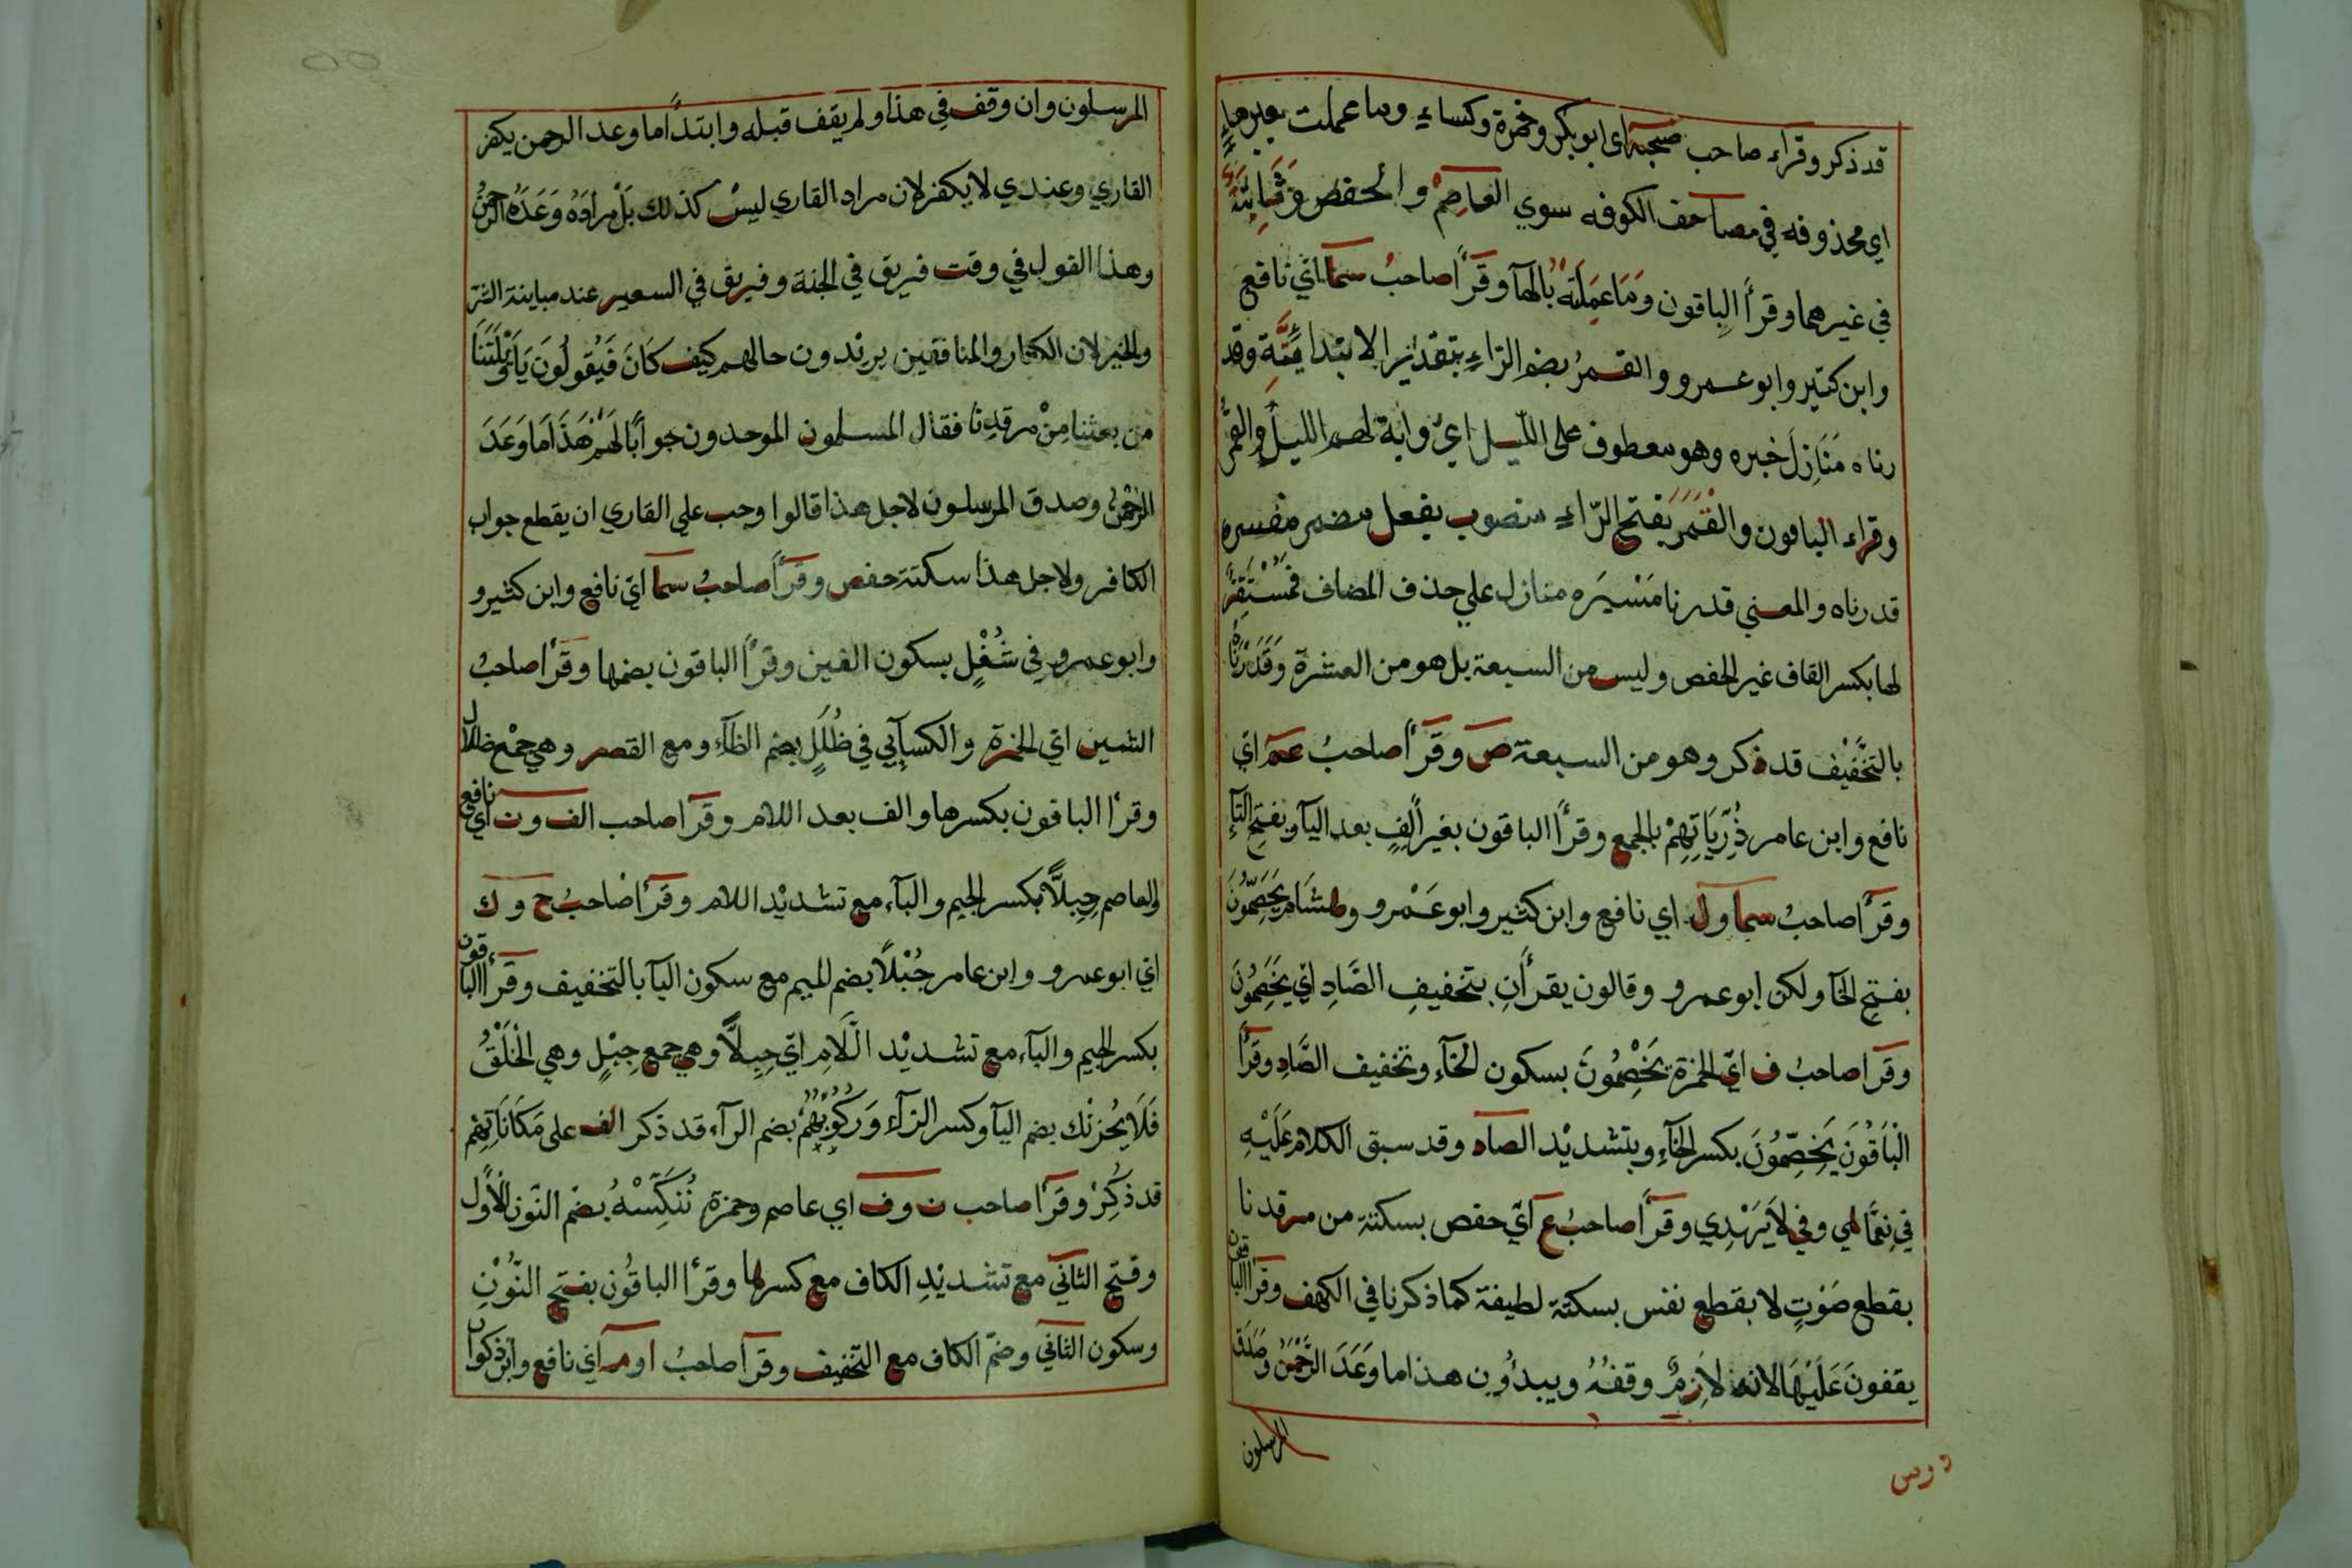 قد ذكر وقرآء صاحب صحبة اى ابو بكر وحمزة وكساءي وما عملت بغير هاء
اي محذوفه في مصاحف الكوفه سوي العاصم و الحفص وثابتة
في غيرهما وقرأ الباقون وما عملته بالهآ وقرأ صاحب سما اي نافع
وابن كثير وابو عمرو والقمر بضم الراء بتقدير الابتدا ئية وقد
رناه منازل خبره وهو معطوف على الليل اي واية لهم الليل والقمر
وقراء الباقون والقمر بفتح الرّاء منصوب بفعل مضمر مفسره
قدرناه والمعني قدرنا مسيره منازل علي حذف المضاف فمستقر
لها بكسر القاف غير الحفص وليس من السبعة بل هو من العشرة وقدرناه
بالتخفيف قد ذكر وهو من السبعة ص وقرأ صاحب عم اي
نافع وابن عامر ذرياتهم بالجمع وقرأ الباقون بغير الف بعد اليآ وبفتح التآء
وقرأ صاحب سما ول اي نافع وابن كثير وابو عمرو وهشام يخصمون
بفتح الخآ ولكن ابو عمرو وقالون يقرأن بتخفيف الصاد اي يخصمون
وقرا صاحب ف اي الحمزة يخصمون بسكون الخآء وتخفيف الصاد وقرأ
الباقون يخصمون بكسر الخآء وبتشديد الصاد وقد سبق الكلام عليه
في نعما هي وفي لا يهدي وقرأ صاحب ع اي حفص بسكتة من مرقدنا
بقطع صوت لا بقطع نفس بسكتة لطيفة كما ذكرنا في الكهف وقرأ الباقون
يقفون عليها لانه لازم وقفه ويبدؤن هذا ما وعد الرحمن وصدق
المرسلون
المرسلون وان وقف في هذا ولم يقف قبله وابتدأ ما وعد الرحمن يكفر
القاري وعندي لا يكفر لان مراد القاري ليس كذلك بل مراده وعده الرحمن
وهذا القول في وقت فريق في الجنة وفريق في السعير عند مباينة الشر
والخير لان الكفار والمنافقين يرتدون حالهم كيف كان فيقولون يا ويلتنا
من بعثنا من مرقدنا فقال المسلمون الموحدون جوابا لهم هذا ما وعد
الرحمن وصدق المرسلون لاجل هذا قالوا وجب علي القاري ان يقطع جواب
الكافر ولاجل هذا سكتة حفص وقرأ صاحب سما اي نافع وابن كثير و
وابو عمرو في شغل بسكون الغين وقرأ الباقون بضمها وقرأ صاحب
الشين اي الحمزة والكسآيي في ظلل بضم الظآء ومع القصر وهي جمع ظلال
وقرأ الباقون بكسرها والف بعد اللام وقرآ صاحب الف ون اي نافع
والعاصم جبلا بكسر الجيم والبآء مع تشديد اللام وقرأ صاحب ح وك
اي ابو عمرو وابن عامر جبلا بضم الميم مع سكون البآ بالتخفيف وقرأ الباقون
بكسر الجيم والبآء مع تشديد اللام اي جبلا وهي جمع جبل وهي الخلق
فلا يحزنك بضم اليآ وكسر الزآء وركوبهم بضم الرآء قد ذكر الف على مكاناتهم
قد ذكر وقرآ صاحب ن وف اي عاصم وحمزة ننكسه بضم النون الاول
وفتح الثاني مع تشديد الكاف مع كسرها وقرأ الباقون بفتح النون
وسكون الثاني وضم الكاف مع التخفيف وقرآ صاحب ا وم اي نافع وابن ذكوان